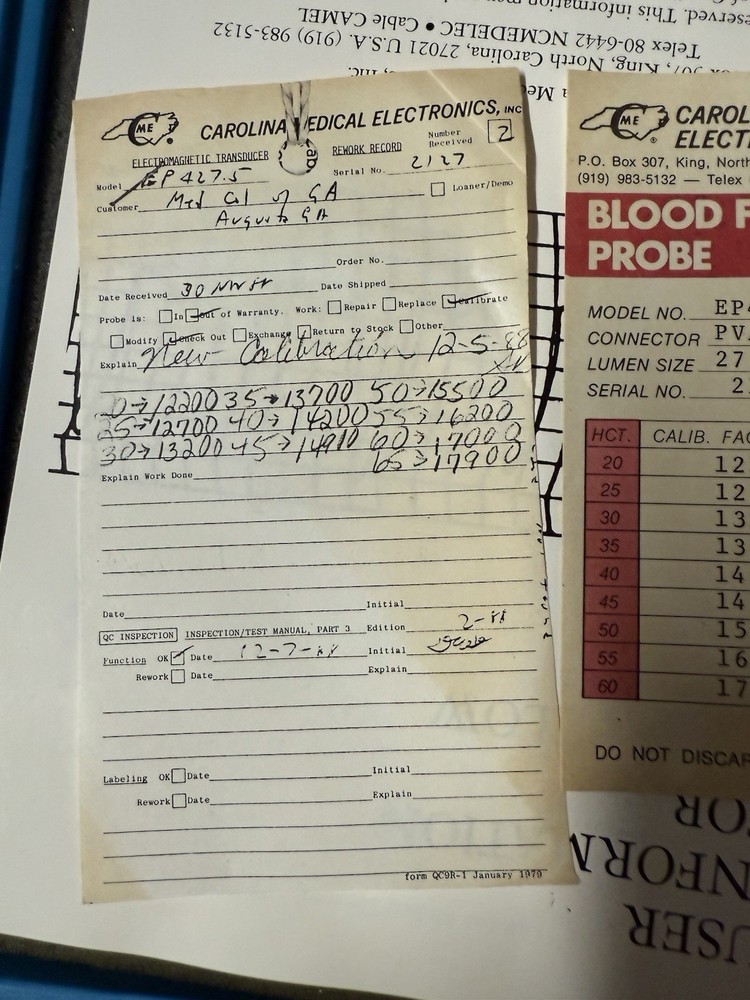 eserved. This information may
Telex 80-6442 NCMEDELEC • Cable CAMEL
ox 307, King, North Carolina, 27021 U.S.A. (919) 983-5132
, Inc.
CME
CAROLINA MEDICAL ELECTRONICS, INC
ELECTROMAGNETIC TRANSDUCER REWORK RECORD
Number Received 2
Model EP427.5 Serial No. 2127
Customer Med Col of GA Loaner/Demo
Augusta GA
Order No.
Date Received 30 Nov 88 Date Shipped
Probe is: In Out of Warranty. Work: Repair Replace Calibrate
Modify Check Out Exchange Return to Stock Other
Explain New Calibration 12-5-88
0→12200 35→13700 50→15500
25→12700 40→14200 55→16200
30→13200 45→14910 60→17000
65→17900
Explain Work Done
Date Initial
QC INSPECTION INSPECTION/TEST MANUAL, PART 3 Edition 2-88
Function OK Date 12-7-88 Initial
Rework Date Explain
Labeling OK Date Initial
Rework Date Explain
form QC9R-1 January 1979
CME
CAROL
ELECT
P.O. Box 307, King, North
(919) 983-5132 — Telex
BLOOD F
PROBE
MODEL NO. EP4
CONNECTOR PV
LUMEN SIZE 27
SERIAL NO. 2
HCT. CALIB. FAC
20 12
25 12
30 13
35 13
40 14
45 14
50 15
55 16
60 17
DO NOT DISCAR
OR
NFORM
USER